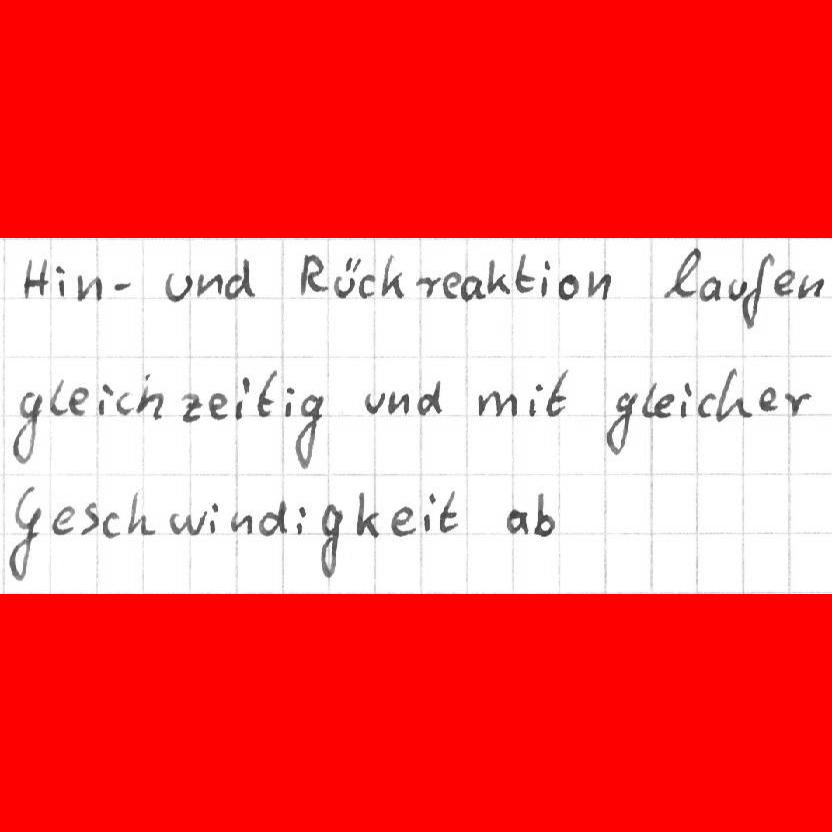 Hin- und Rückreaktion laufen
gleichzeitig und mit gleicher
Geschwindigkeit ab